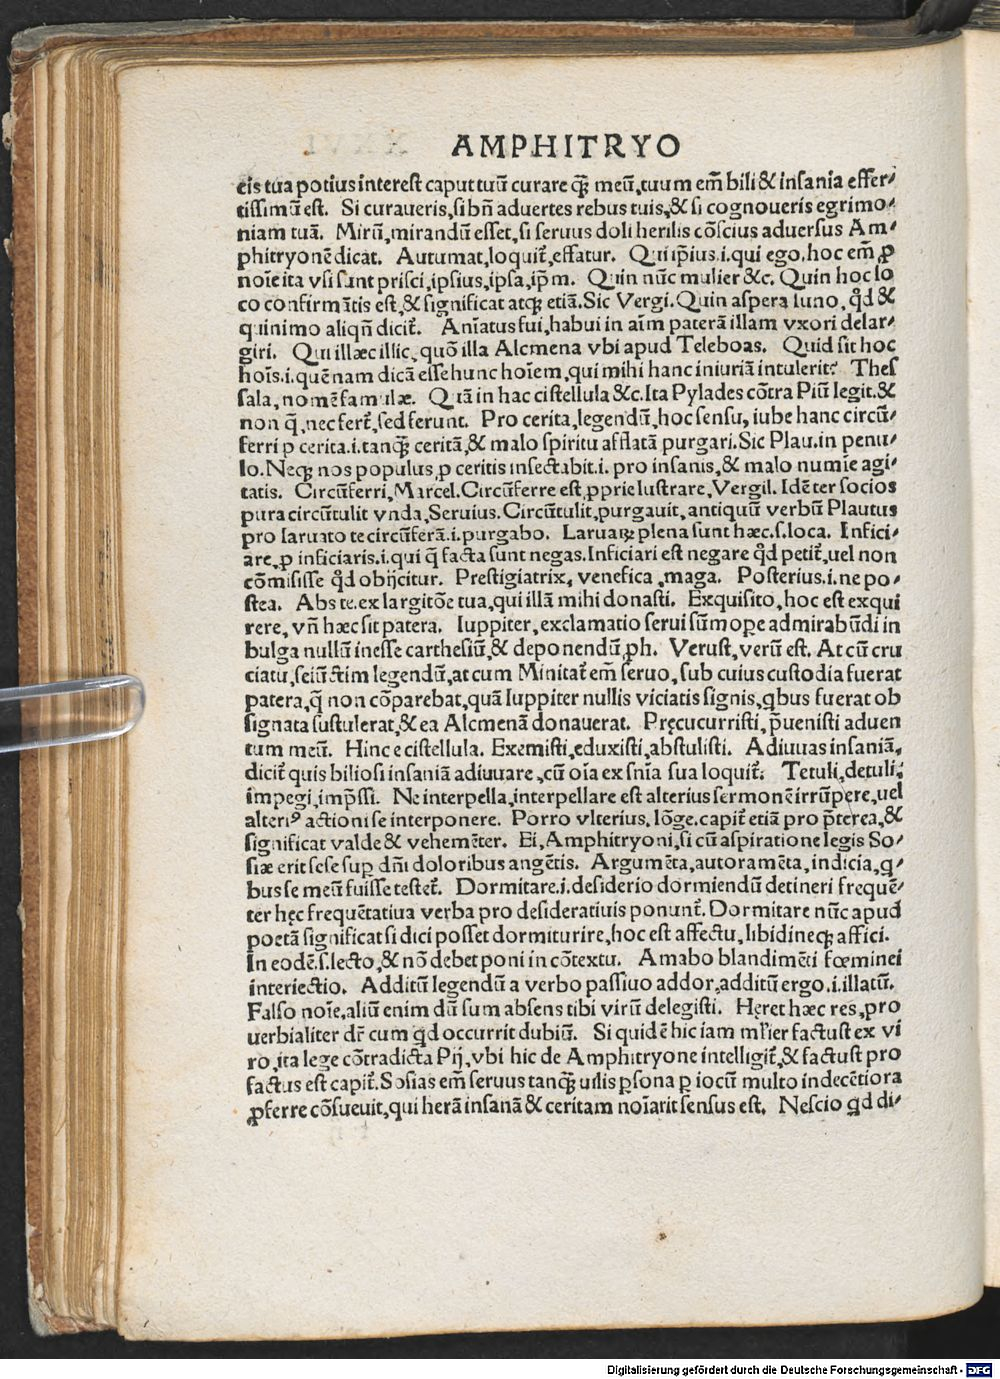 AMPHITRYO
cis tua potius interest caput tuũ curare q̃ʒ meũ, tuum em̃ bili & insania effer⸗
tissimũ est. Si curaueris, si bñ aduertes rebus tuis, & si cognoueris egrimo⸗
niam tuã. Mirũ, mirandũ esset, si seruus doli herilis cõscius aduersus Am⸗
phitryonẽ dicat. Autumat, loquit̃, effatur. Qui ip̃ius .i. qui ego, hoc em̃ ꝓ
noĩe ita vsi sunt prisci, ipsius, ipsa, ip̃m. Quin nũc mulier &c. Quin hoc lo
co confirmãtis est, & significat atqʒ etiã. Sic Vergi. Quin aspera Iuno, qd̃ &
quinimo aliqñ dicit̃. Aniatus fui, habui in aĩm paterã illam vxori delar⸗
giri. Qui illæc illic, quõ illa Alcmena vbi apud Teleboas. Quid sit hoc
hoĩs .i. quẽnam dicã esse hunc hoĩem, qui mihi hanc iniuriã intulerit? Thes
sala, nomẽ famulæ. Quã in hac cistellula &c. Ita Pylades cõtra Piũ legit. &
non q̃, nec fert̃, sed ferunt. Pro cerita, legendũ, hoc sensu, iube hanc circũ⸗
ferri p cerita .i. tanq̃ʒ ceritã, & malo spiritu afflatã purgari. Sic Plau. in penu⸗
lo. Neqʒ nos populus, ꝓ ceritis insectabit .i. pro insanis, & malo numie agi⸗
tatis. Circũferri, Marcel. Circũferre est, ꝓprie lustrare, Vergil. Idẽ ter socios
pura circũtulit vnda, Seruius. Circũtulit, purgauit, antiquũ verbũ Plautus
pro laruato te circũferã .i. purgabo. Laruaꝝ plena sunt hæc .s. loca. Infici⸗
are, ꝓ inficiaris .i. qui q̃ facta sunt negas. Inficiari est negare qd̃ petit̃, uel non
cõmisisse qd̃ obijcitur. Prestigiatrix, venefica, maga. Posterius .i. ne po⸗
stea. Abs te, ex largitõe tua, qui illã mihi donasti. Exquisito, hoc est exqui
rere, vñ hæc sit patera. Iuppiter, exclamatio serui sũmope admirabũdi in
bulga nullũ inesse carthesiũ, & deponendũ, ph. Verust, verũ est. At cũ cru
ciatu, seiũctim legendũ, at cum Minitat̃ em̃ seruo, sub cuius custodia fuerat
patera, q̃ non cõparebat, quã Iuppiter nullis viciatis signis, qbus fuerat ob
signata sustulerat, & ea Alcmenã donauerat. Pręcucurristi, p̃uenisti aduen
tum meũ. Hinc e cistellula. Exemisti, eduxisti, abstulisti. Adiuuas insaniã,
dicit̃ quis biliosi insaniã adiuuare, cũ oĩa ex sñia sua loquit̃. Tetuli, detuli,
impegi, imp̃ssi. Ne interpella, interpellare est alterius sermonẽ irrũpere, uel
alteriꝰ actioni se interponere. Porro vlterius, lõge, capit̃ etiã pro p̃terea, &
significat valde & vehemẽter. Ei, Amphitryoni, si cũ aspiratione legis So⸗
siæ erit sese sup dñi doloribus angẽtis. Argumẽta, autoramẽta, indicia, q⸗
bus se meũ fuisse testet̃. Dormitare .i. desiderio dormiendũ detineri frequẽ⸗
ter hęc frequẽtatiua verba pro desideratiuis ponunt̃. Dormitare nũc apud
poetã significat si dici posset dormiturire, hoc est affectu, libidineqʒ affici.
In eodẽ .s. lecto, & nõ debet poni in cõtextu. Amabo blandimẽti fœminei
interiectio. Additũ legendũ a verbo passiuo addor, additũ ergo .i. illatũ.
Falso noĩe, aliũ enim dũ sum absens tibi virũ delegisti. Hęret hæc res, pro
uerbialiter dr̃ cum qd occurrit dubiũ. Si quidẽ hic iam ml̃ier factust ex vi
ro, ita lege cõtradicta Pij, vbi hic de Amphitryone intelligit̃, & factust pro
factus est capit̃. Sosias em̃ seruus tanq̃ʒ uilis psona p iocũ multo indecẽtiora
ꝓferre cõsueuit, qui herã insanã & ceritam noĩarit sensus est. Nescio qd di⸗
Digitalisierung gefördert durch die Deutsche Forschungsgemeinschaft - DFG